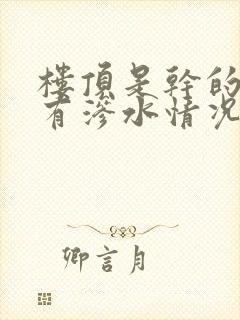 樓頂是幹的
有滲水情況
卿言月